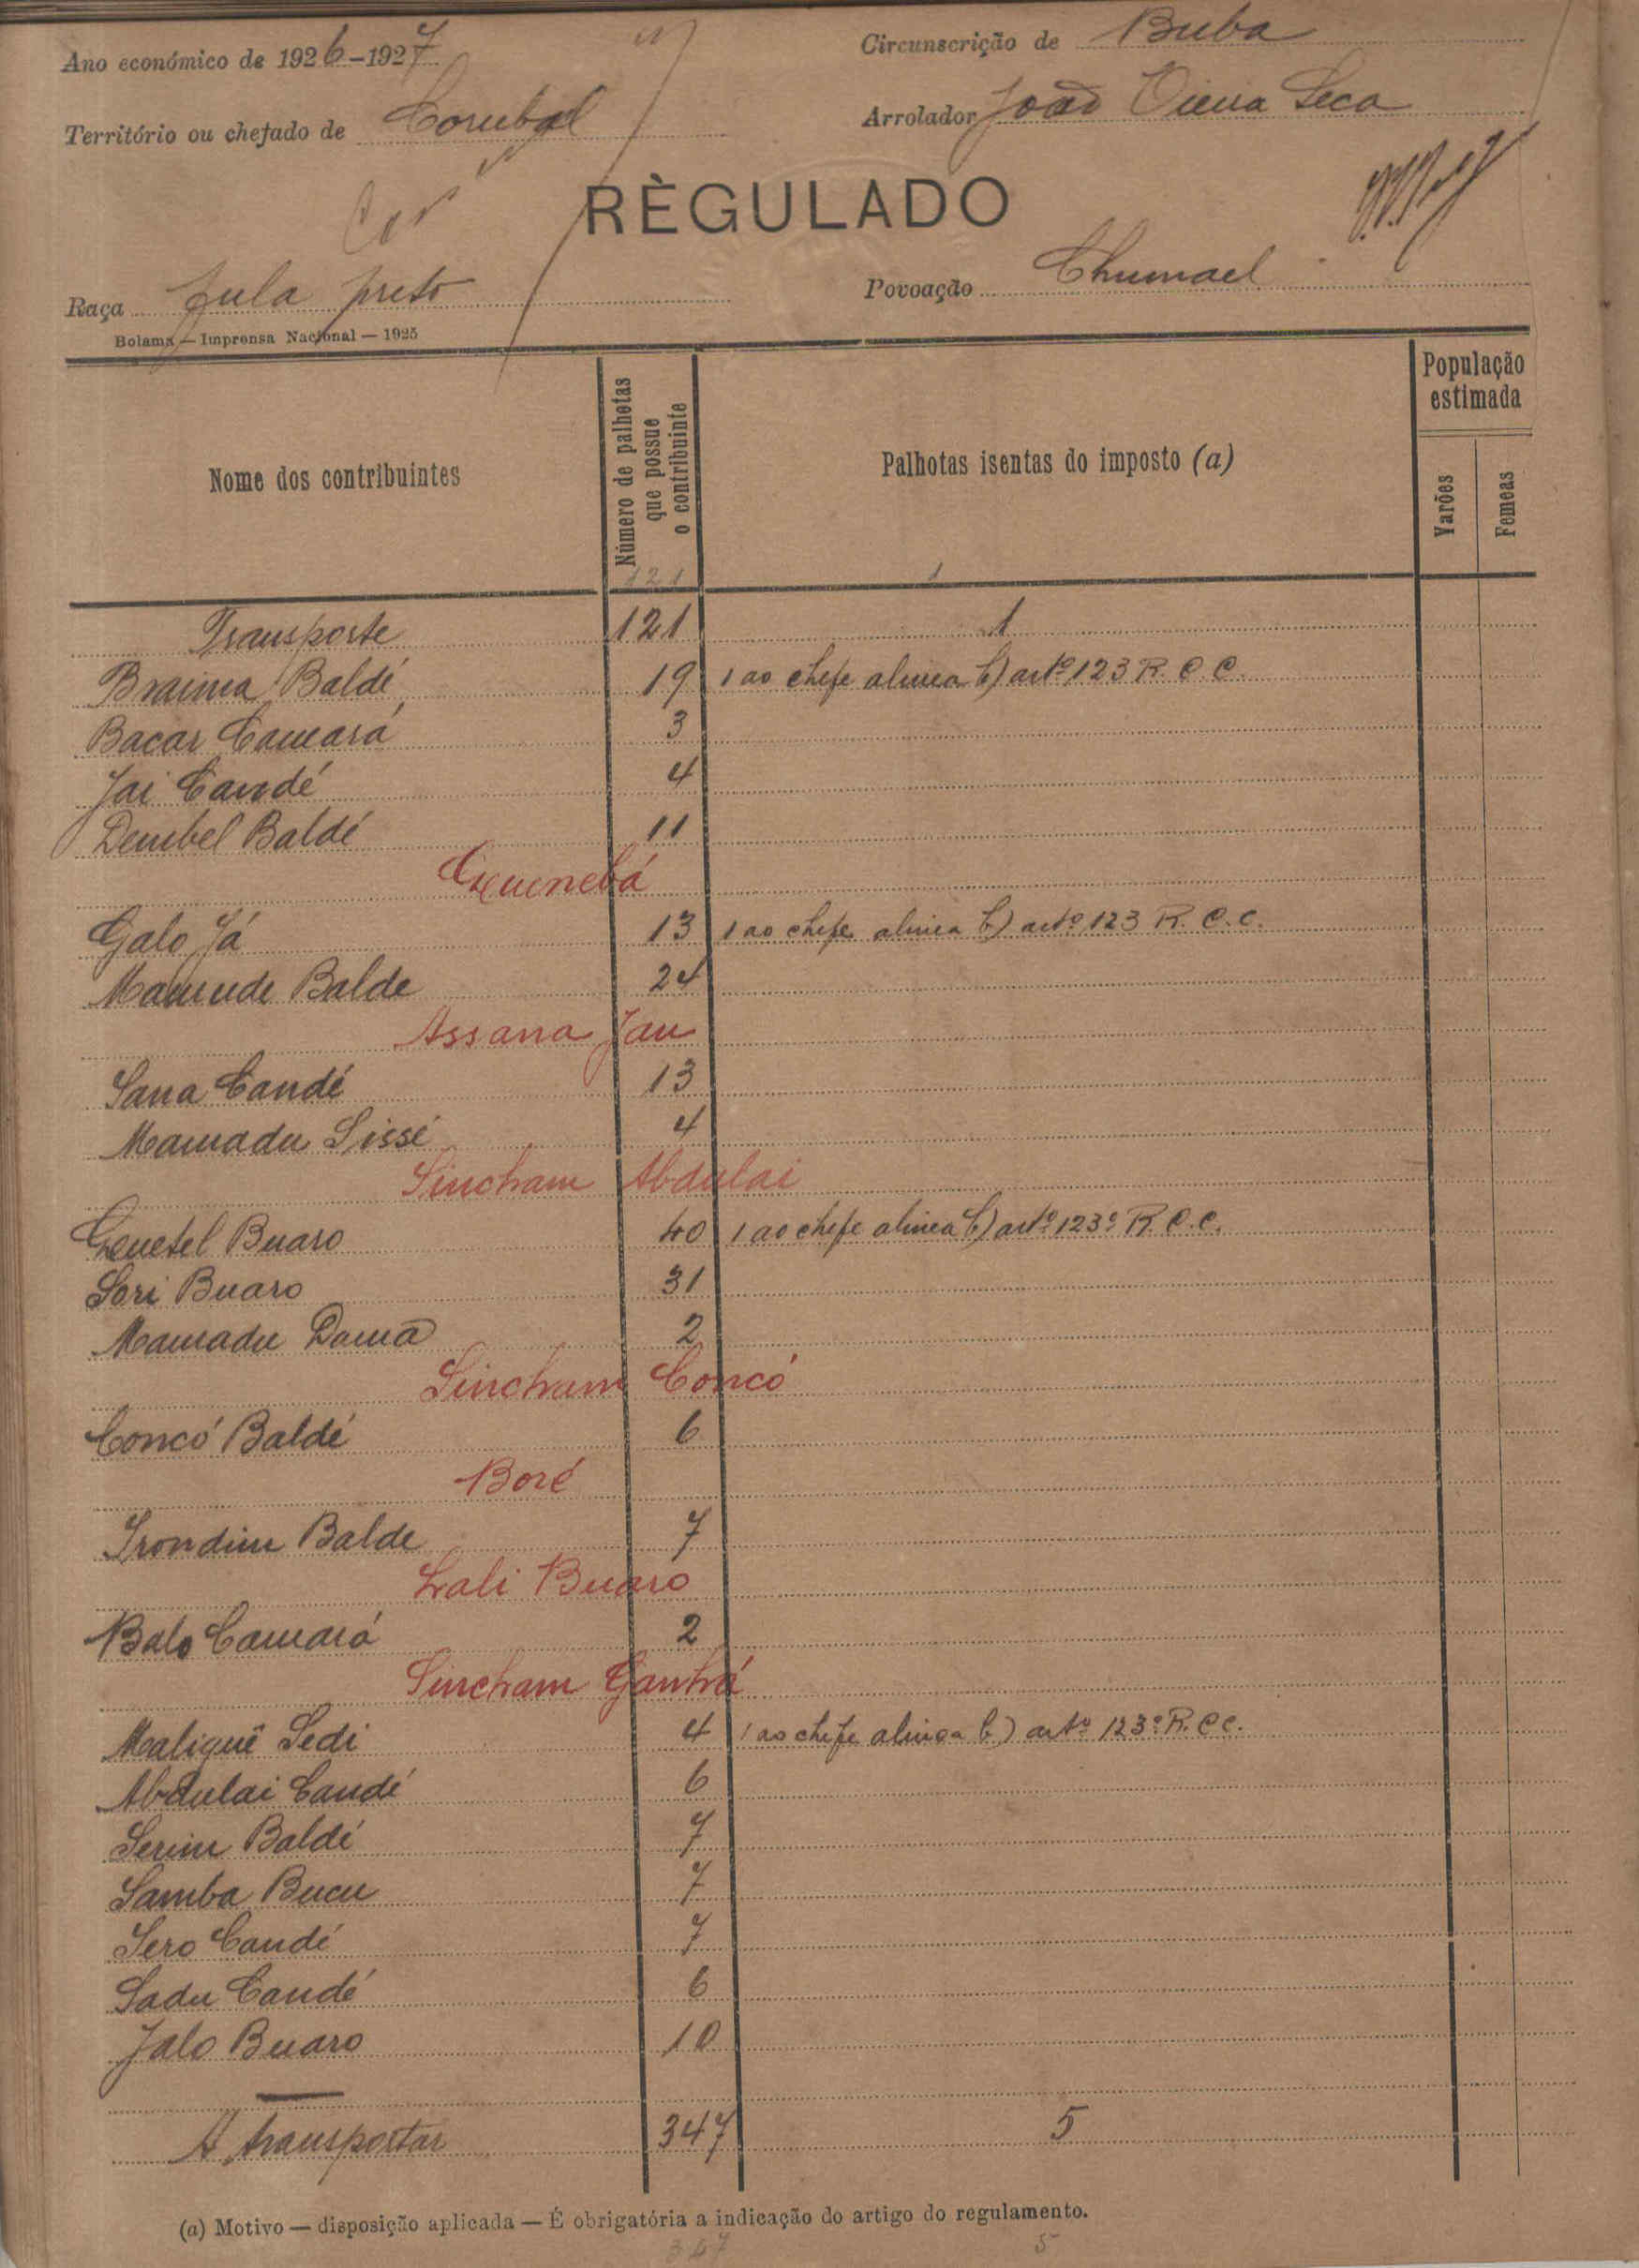 Ano económico de 1926-1927
Circunscrição de Buba
Território ou chefado de Corubal
Arrolador João Vieira Seca
RÈGULADO
Raça Fula preto
Povoação Chumael
Bolama — Imprensa Nacional — 1925
Nome dos contribuintes
Número de palhotas que possue o contribuinte
Palhotas isentas do imposto (a)
População estimada
Varões
Femeas
121 1
Transporte 121 1
Braima Baldé 19 1 ao chefe alinea b) artº 123 R. C. C.
Bacar Camará 3
Jai Candé 4
Dembel Baldé 11
Galo Já 13 1 ao chefe alinea b) artº 123 R. C. C.
Mamude Balde 24
Assana Jau
Sana Candé 13
Mamadu Sissé 4
Sincham Abdulai
Guetel Buaro 40 1 ao chefe alinea b) artº 123º R. C. C.
Sori Buaro 31
Mamadu Dama 2
Sincham Concó
Concó Baldé 6
Boré
Irondim Balde 7
Lali Buaro
Balo Camará 2
Sincham Ganhá
Maliguê Sedi 4 1 ao chefe alinea b) artº 123º R. C C.
Abdulai Candé 6
Serim Baldé 7
Samba Bucu 7
Sero Candé 7
Sadu Candé 6
Jalo Buaro 10
A transportar 347 5
(a) Motivo — disposição aplicada — É obrigatória a indicação do artigo do regulamento.
347 5